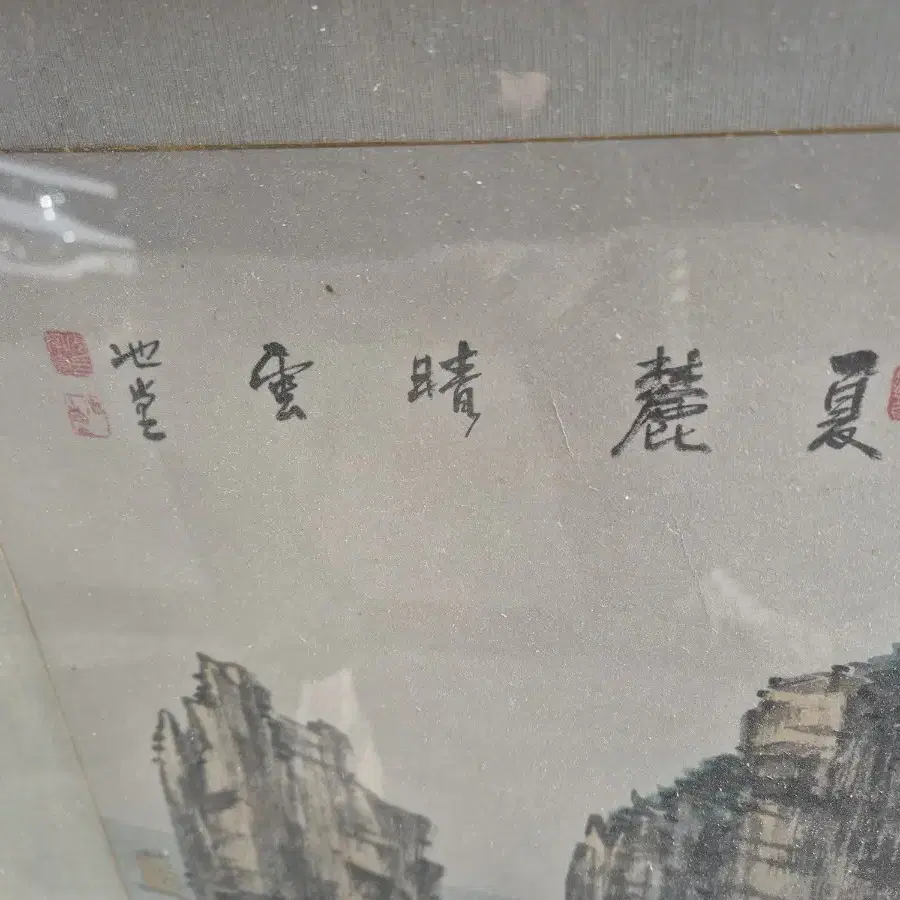 夏麓晴雲
池堂